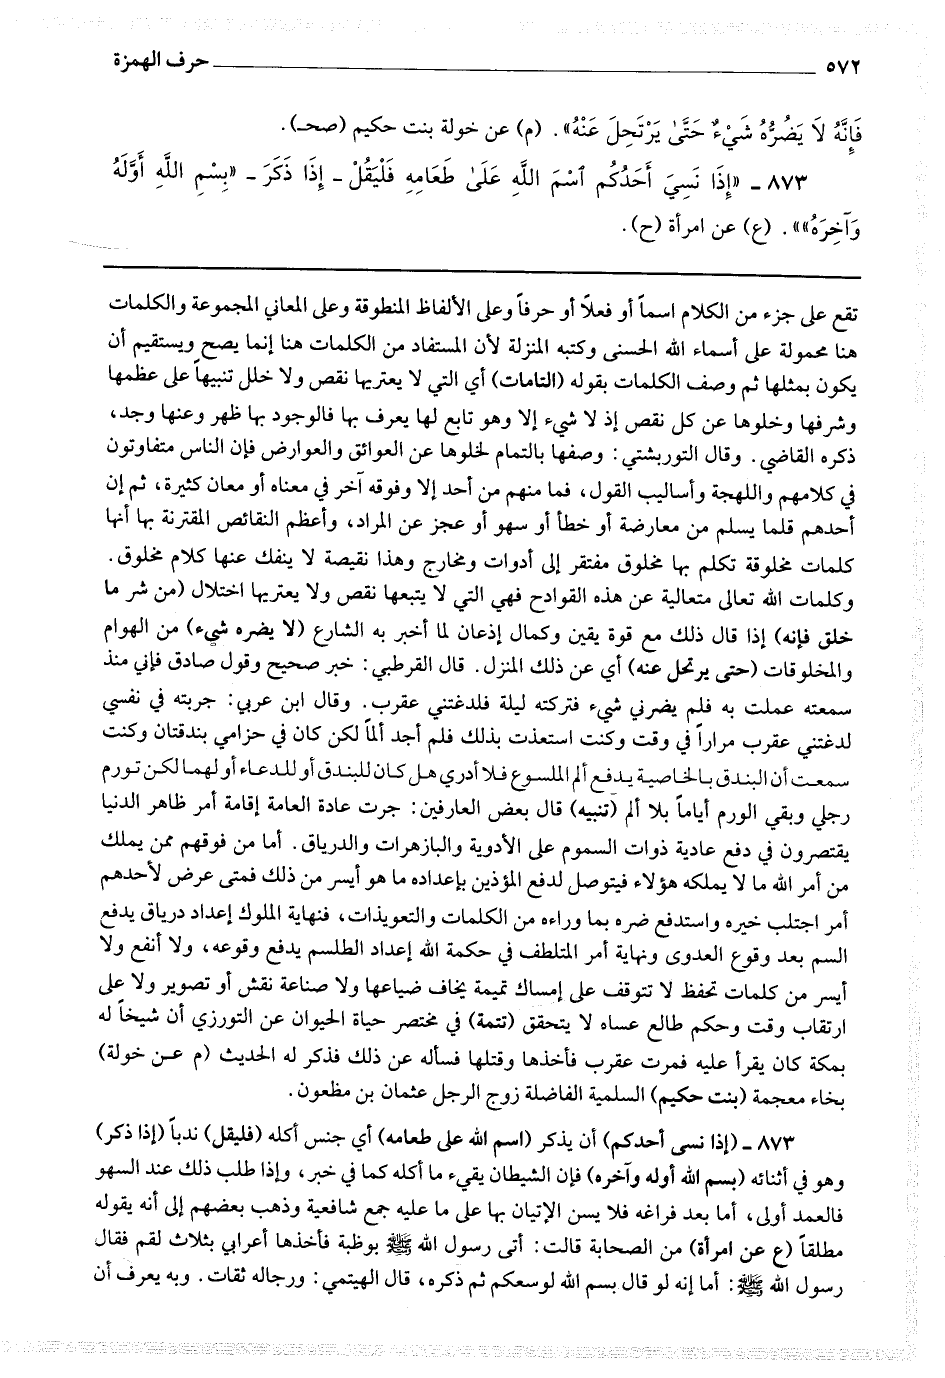 ٥٧٢ حرف الهمزة
فَإِنَّهُ لَا يَضُرُّهُ شَيْءٌ حَتَّىٰ يَرْتَحِلَ عَنْهُ». (م) عن خولة بنت حكيم (صحـ).
٨٧٣ ـ «إِذَا نَسِيَ أَحَدُكُم ٱسْمَ اللَّهِ عَلَىٰ طَعَامِهِ فَلْيَقُلْ ـ إِذَا ذَكَرَ ـ «بِسْمِ اللَّهِ أَوَّلَهُ
وَآخِرَهُ»». (ع) عن امرأة (ح).
تقع على جزء من الكلام اسماً أو فعلاً أو حرفاً وعلى الألفاظ المنطوقة وعلى المعاني المجموعة والكلمات
هنا محمولة على أسماء الله الحسنى وكتبه المنزلة لأن المستفاد من الكلمات هنا إنما يصح ويستقيم أن
يكون بمثلها ثم وصف الكلمات بقوله (التامات) أي التي لا يعتريها نقص ولا خلل تنبيهاً على عظمها
وشرفها وخلوها عن كل نقص إذ لا شيء إلا وهو تابع لها يعرف بها فالوجود بها ظهر وعنها وجد،
ذكره القاضي. وقال التوربشتي: وصفها بالتمام لخلوها عن العوائق والعوارض فإن الناس متفاوتون
في كلامهم واللهجة وأساليب القول، فما منهم من أحد إلا وفوقه آخر في معناه أو معان كثيرة، ثم إن
أحدهم قلما يسلم من معارضة أو خطأ أو سهو أو عجز عن المراد، وأعظم النقائص المقترنة بها أنها
كلمات مخلوقة تكلم بها مخلوق مفتقر إلى أدوات ومخارج وهذا نقيصة لا ينفك عنها كلام مخلوق.
وكلمات الله تعالى متعالية عن هذه القوادح فهي التي لا يتبعها نقص ولا يعتريها اختلال (من شر ما
خلق فإنه) إذا قال ذلك مع قوة يقين وكمال إذعان لما أخبر به الشارع (لا يضره شيء) من الهوام
والمخلوقات (حتى يرتحل عنه) أي عن ذلك المنزل. قال القرطبي: خبر صحيح وقول صادق فإني منذ
سمعته عملت به فلم يضرني شيء فتركته ليلة فلدغتني عقرب. وقال ابن عربي: جربته في نفسي
لدغتني عقرب مراراً في وقت وكنت استعذت بذلك فلم أجد ألماً لكن كان في حزامي بندقتان وكنت
سمعت أن البندق بالخاصية يدفع ألم الملسوع فلا أدري هل كان للبندق أو للدعاء أو لهما لكن تورم
رجلي وبقي الورم أياماً بلا ألم (تنبيه) قال بعض العارفين: جرت عادة العامة إقامة أمر ظاهر الدنيا
يقتصرون في دفع عادية ذوات السموم على الأدوية والبازهرات والدرياق. أما من فوقهم ممن يملك
من أمر الله ما لا يملكه هؤلاء فيتوصل لدفع المؤذين بإعداده ما هو أيسر من ذلك فمتى عرض لأحدهم
أمر اجتلب خيره واستدفع ضره بما وراءه من الكلمات والتعويذات، فنهاية الملوك إعداد درياق يدفع
السم بعد وقوع العدوى ونهاية أمر المتلطف في حكمة الله إعداد الطلسم يدفع وقوعه، ولا أنفع ولا
أيسر من كلمات تحفظ لا تتوقف على إمساك تميمة يخاف ضياعها ولا صناعة نقش أو تصوير ولا على
ارتقاب وقت وحكم طالع عساه لا يتحقق (تتمة) في مختصر حياة الحيوان عن التورزي أن شيخاً له
بمكة كان يقرأ عليه فمرت عقرب فأخذها وقتلها فسأله عن ذلك فذكر له الحديث (م عـن خولة)
بخاء معجمة (بنت حكيم) السلمية الفاضلة زوج الرجل عثمان بن مظعون.
٨٧٣ ـ (إذا نسى أحدكم) أن يذكر (اسم الله على طعامه) أي جنس أكله (فليقل) ندباً (إذا ذكر)
وهو في أثنائه (بسم الله أوله وآخره) فإن الشيطان يقيء ما أكله كما في خبر، وإذا طلب ذلك عند السهو
فالعمد أولى، أما بعد فراغه فلا يسن الإتيان بها على ما عليه جمع شافعية وذهب بعضهم إلى أنه يقوله
مطلقاً (ع عن امرأة) من الصحابة قالت: أتى رسول الله ﷺ بوظبة فأخذها أعرابي بثلاث لقم فقال
رسول الله ﷺ: أما إنه لو قال بسم الله لوسعكم ثم ذكره، قال الهيتمي: ورجاله ثقات. وبه يعرف أن